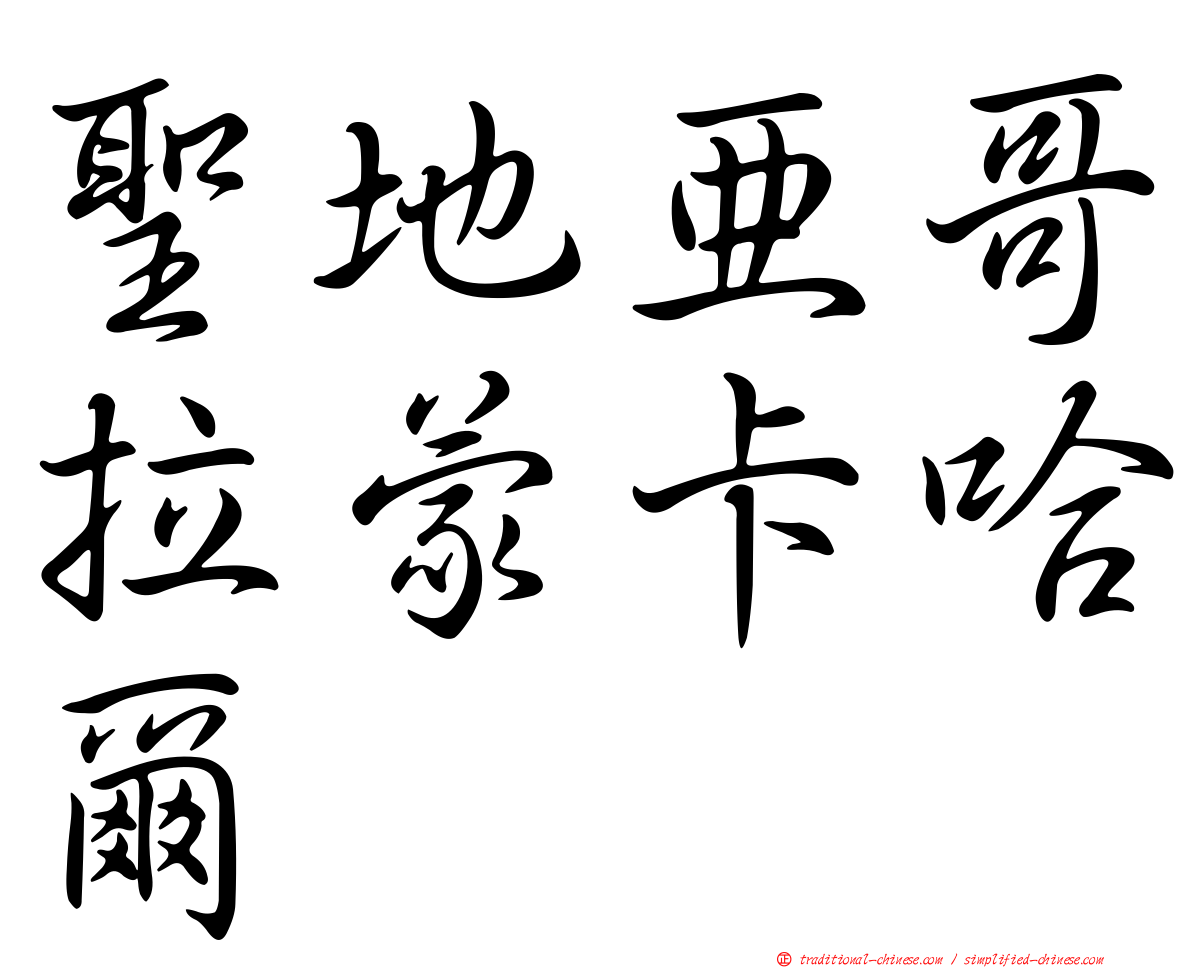 聖地亞哥
拉蒙卡哈
爾
正 traditional-chinese.com / simplified-chinese.com